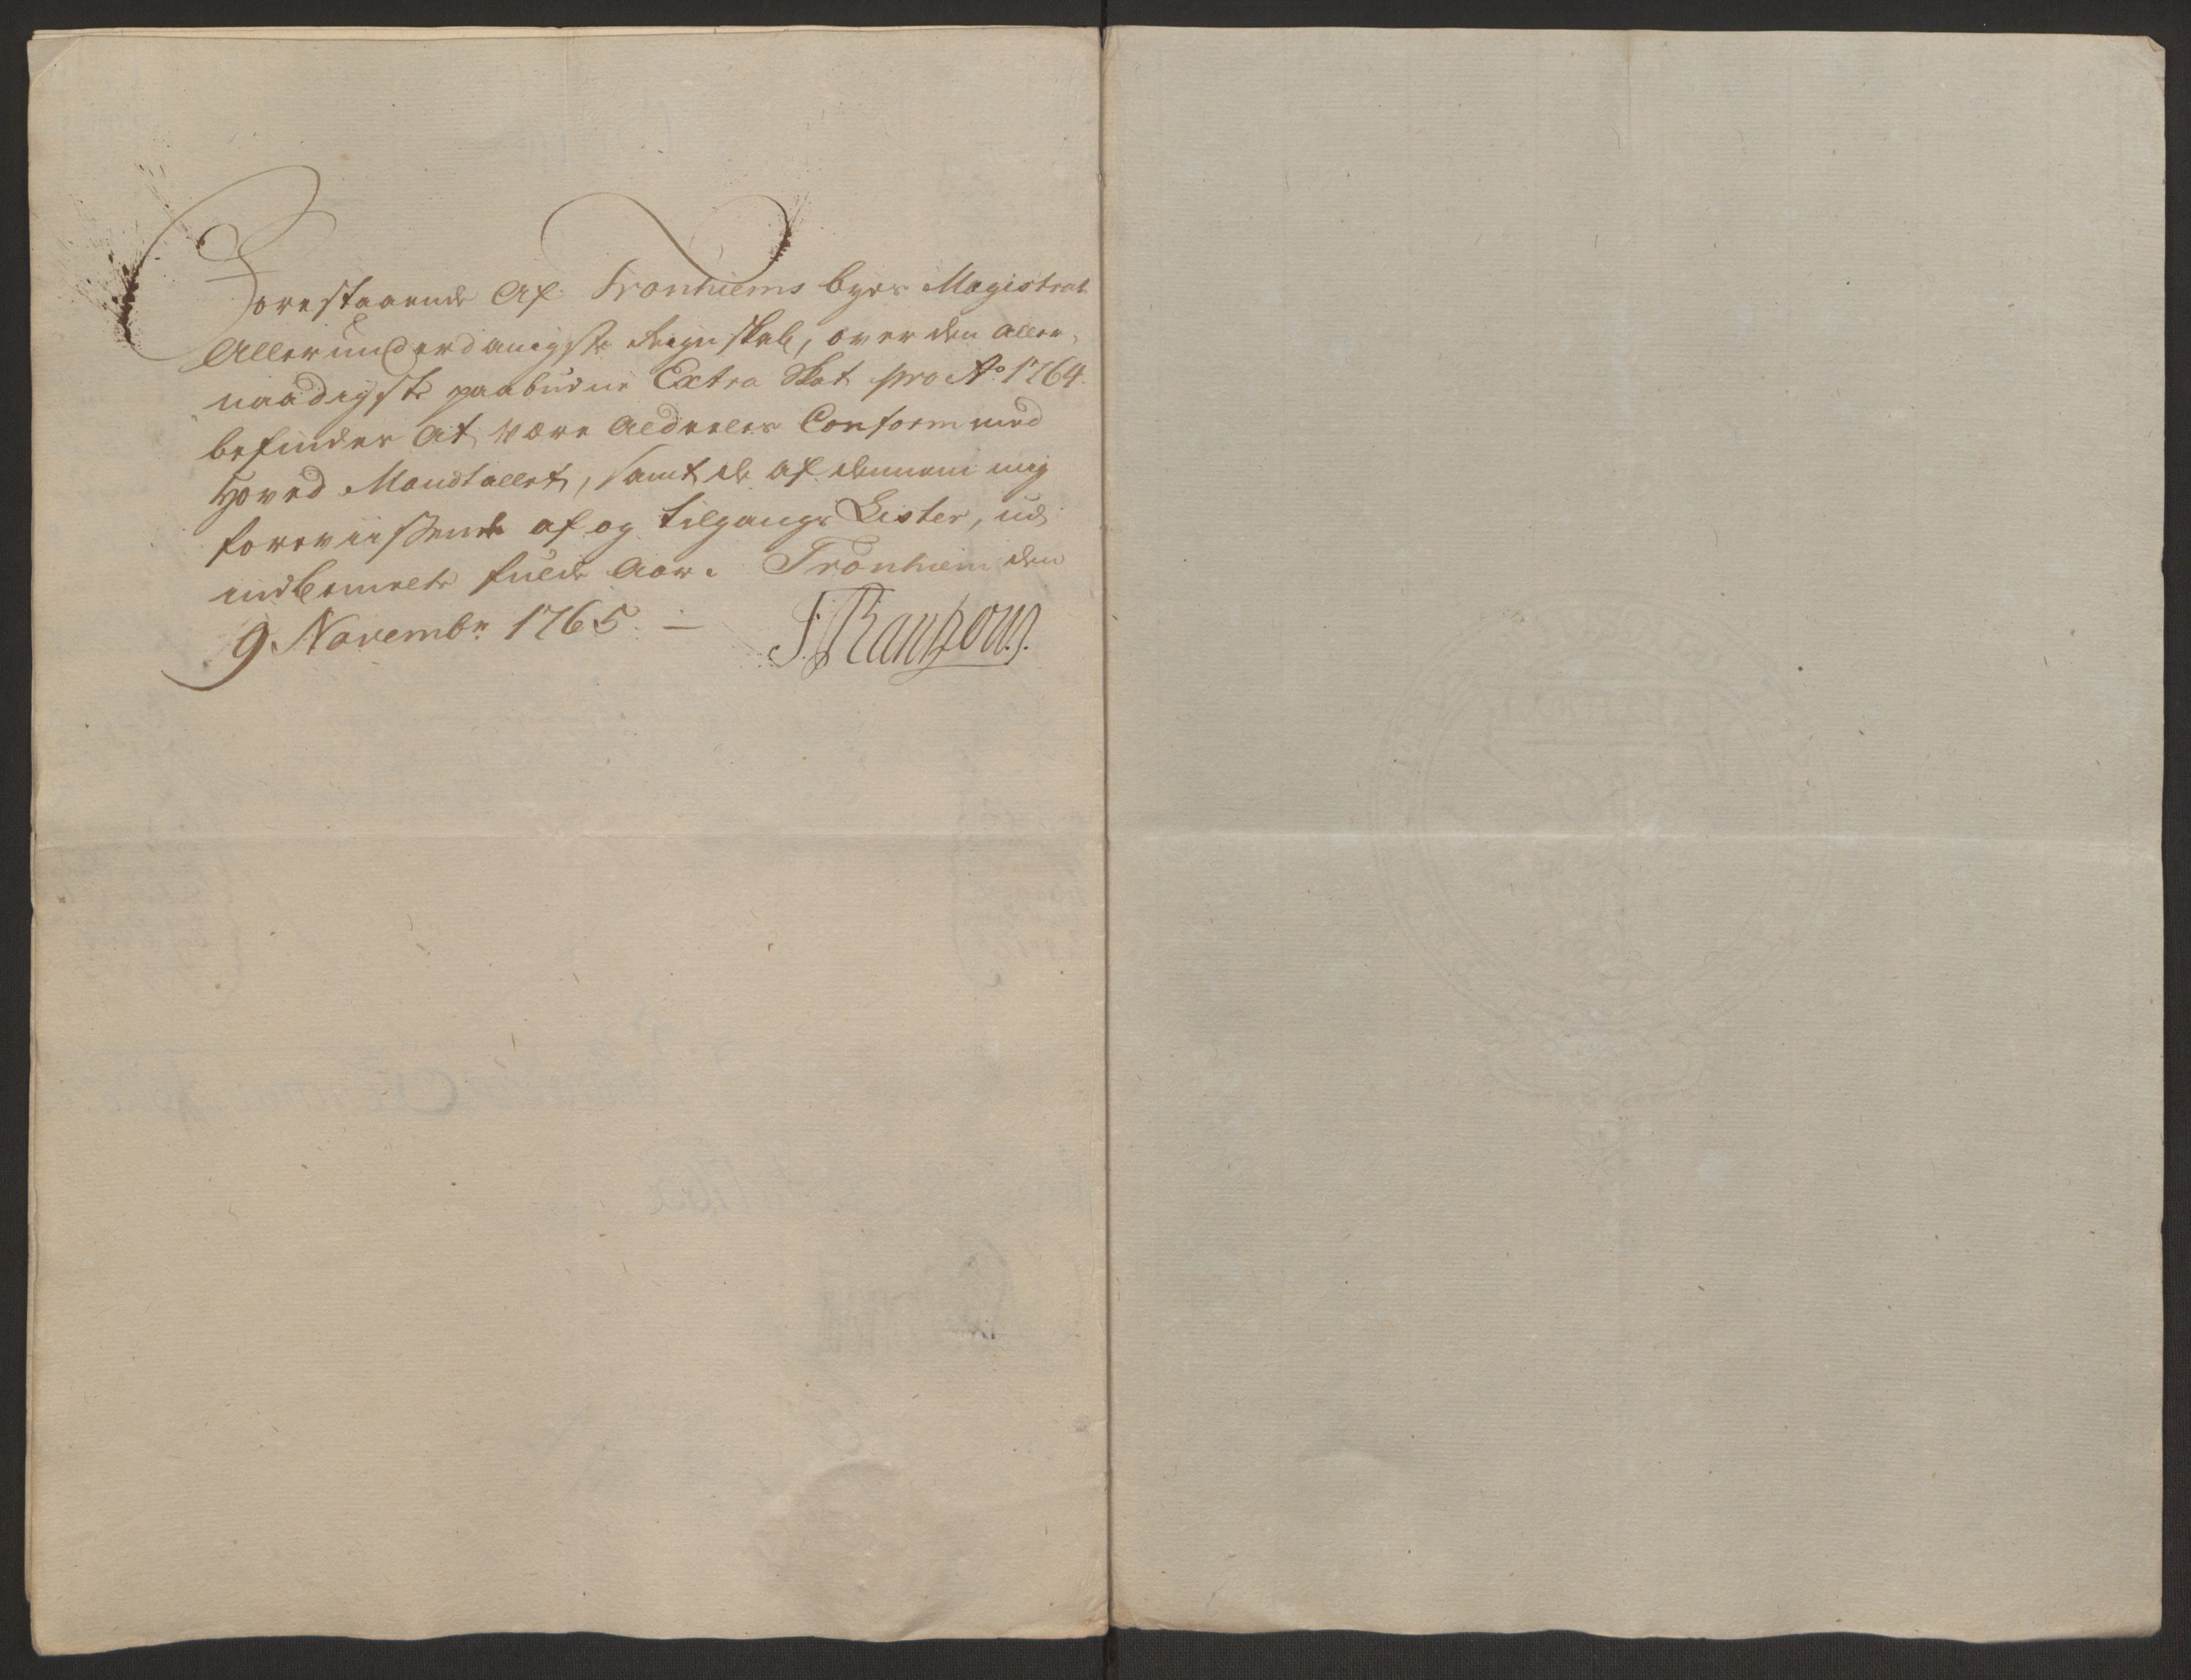 Forestaaende Af Tronhiems byes Magistrat
Allerunderdanigste Regnskab, over den aller-
naadigste paabudne Extra Skat pro Ao 1764.
befindes At være Aldeeles Conform med
Hoved Mandtallet, samt de af dennem mig
foreviisende af og tilgangs Lister, ud
indbemelte fulde Aar. Tronhiem den
9 Novembr 1765. —
Rantzou